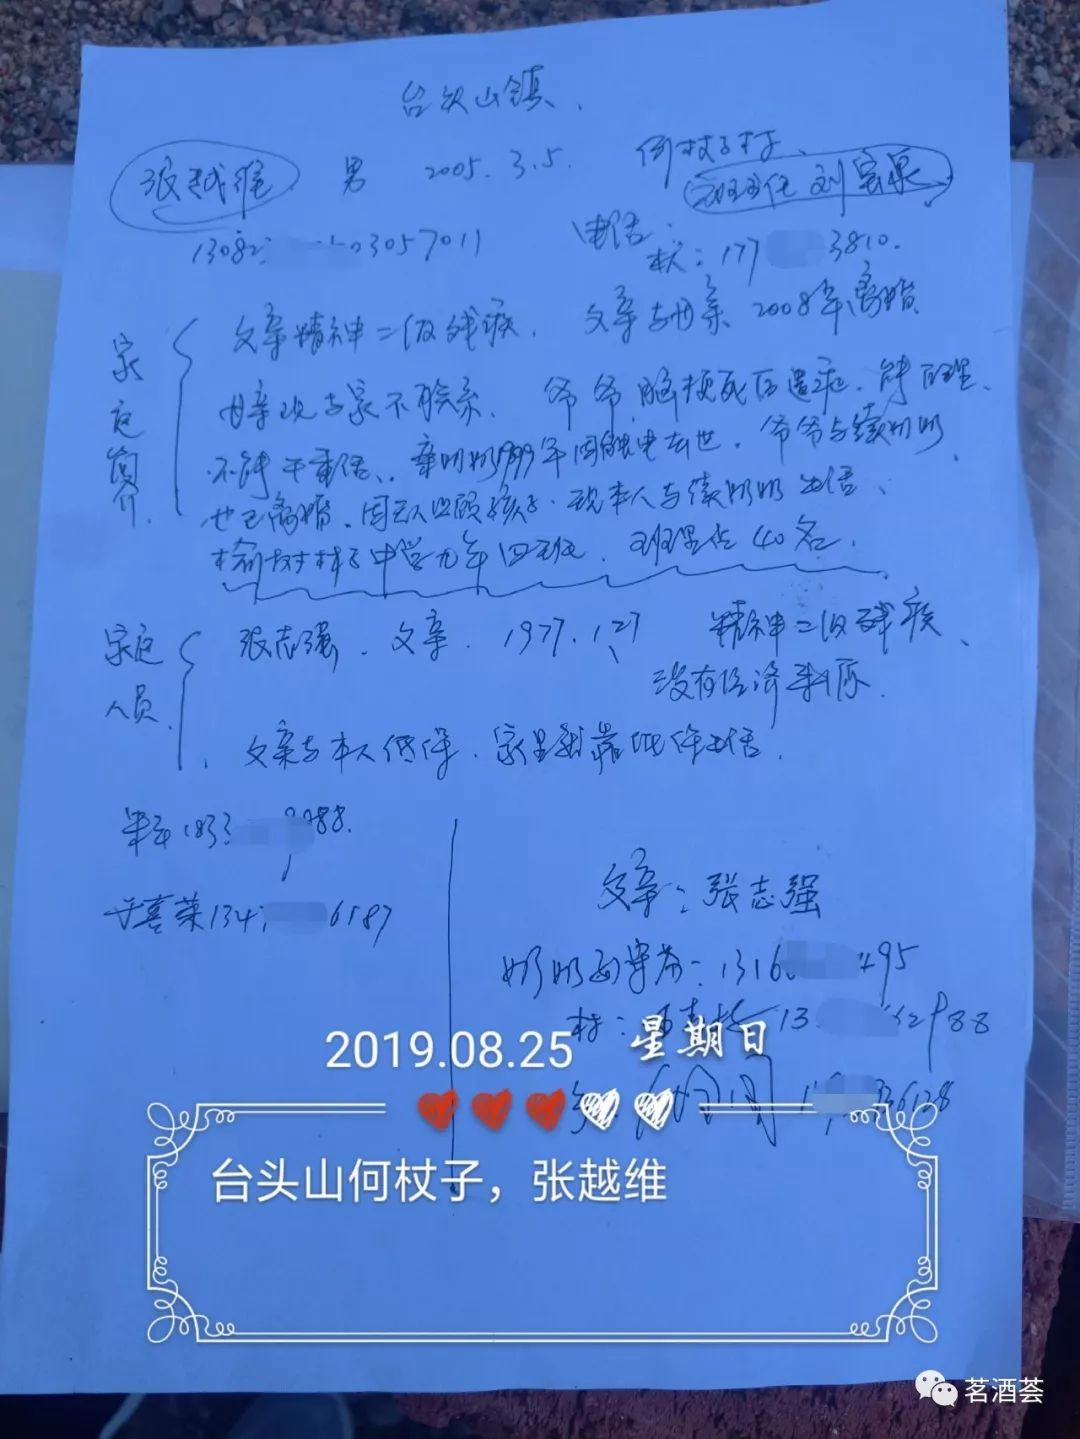 台头山镇、
张越维 男 2005.3.5. 何杖子村、
班主任 刘
13082 03057011 电话:
本人:177 3810.
家庭简介
父亲精神二级残疾. 父亲与母亲 2008年离婚
母亲现与家不联系. 爷爷 脑梗死后遗症.
不能干重活、亲奶奶1999年因触电去世. 爷爷与续奶奶
也已离婚、因无人照顾孩子.现本人与续奶奶生活、
榆树林子中学九年四班. 班里占40名.
家庭人员.
张志强. 父亲. 1977. 精神二级残疾、
没有经济来源.
父亲与本人低保. 家里 靠低保生活.
183 988.
于喜荣134 6187
父亲:张志强
奶奶 :1316 495
村: 13 62988
2019.08.25 星期日
36128
台头山何杖子，张越维
茗酒荟